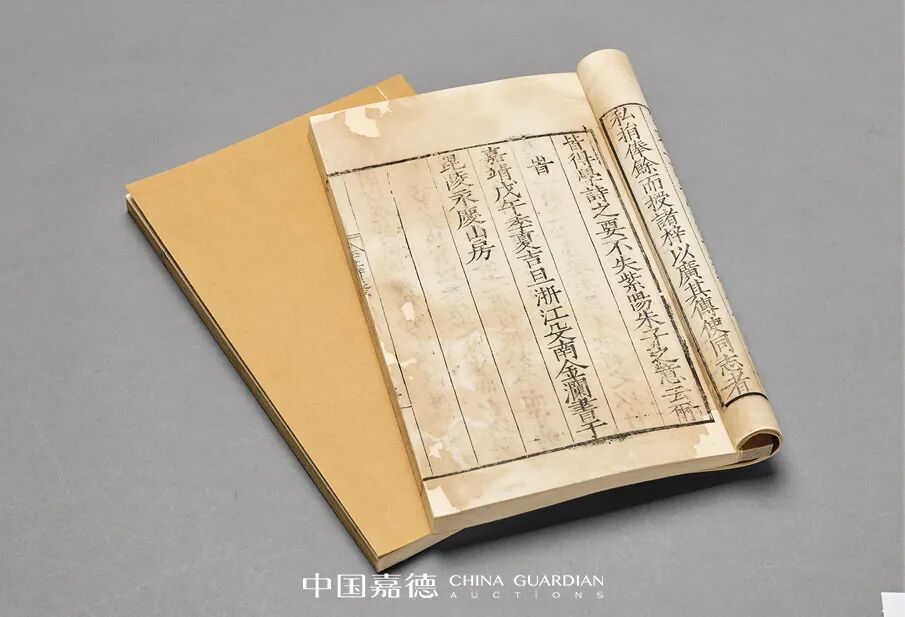 私捐俸餘而授諸梓以廣其傳使同志者
皆得學詩之要不失紫陽朱子之意云爾
旹
嘉靖戊午季夏吉旦浙江南金瀾書于
毘陵永慶山房
中国嘉德 CHINA GUARDIAN
AUCTIONS